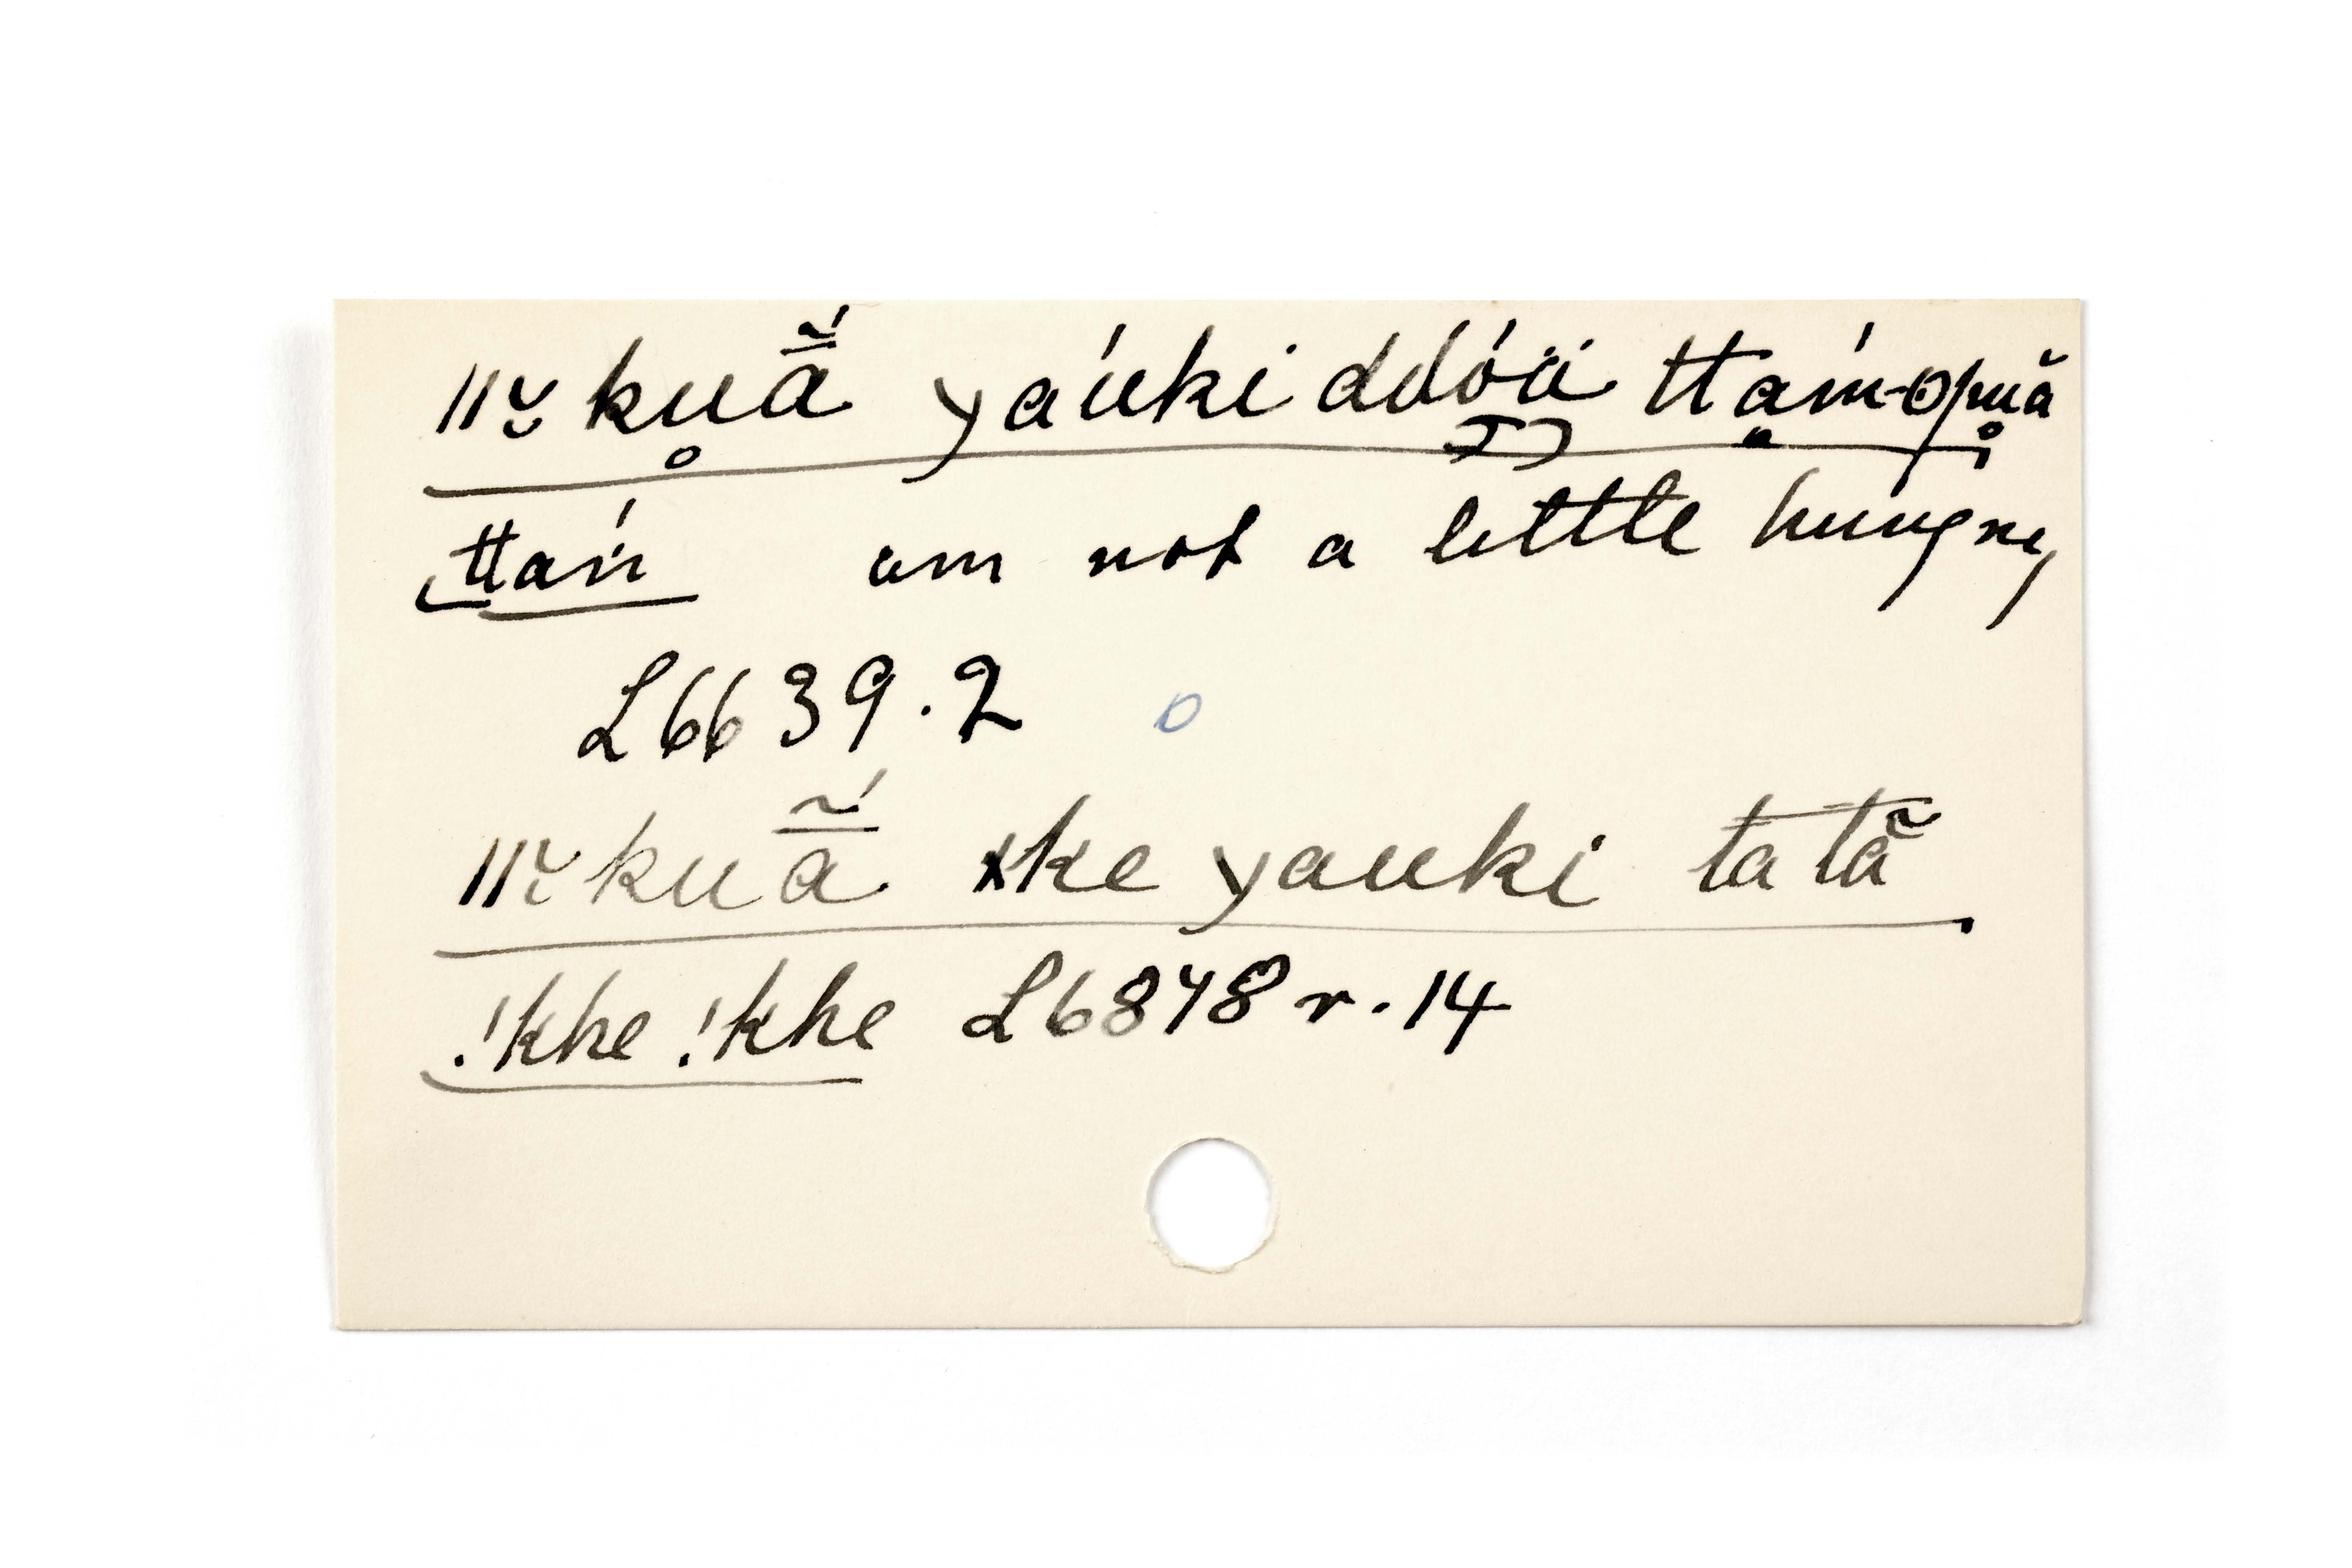 ǁkuā̃́ yaúki ddóä ttạ́m-ŏpuă
ttaṅ́ am not a little hungry
L6639.2 o
ǁkuā̃́ ×ke yauki ta tã
!khe !khe L6878 r. 14